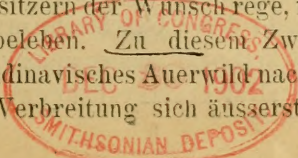 sitzern der Wunsch rege,
beleben. Zu diesem Zw
dinavisches Auerwild nac
Verbreitung sich äusserst
LIBRARY OF CONGRESS,
DEC 1902
SMITHSONIAN DEPOSIT